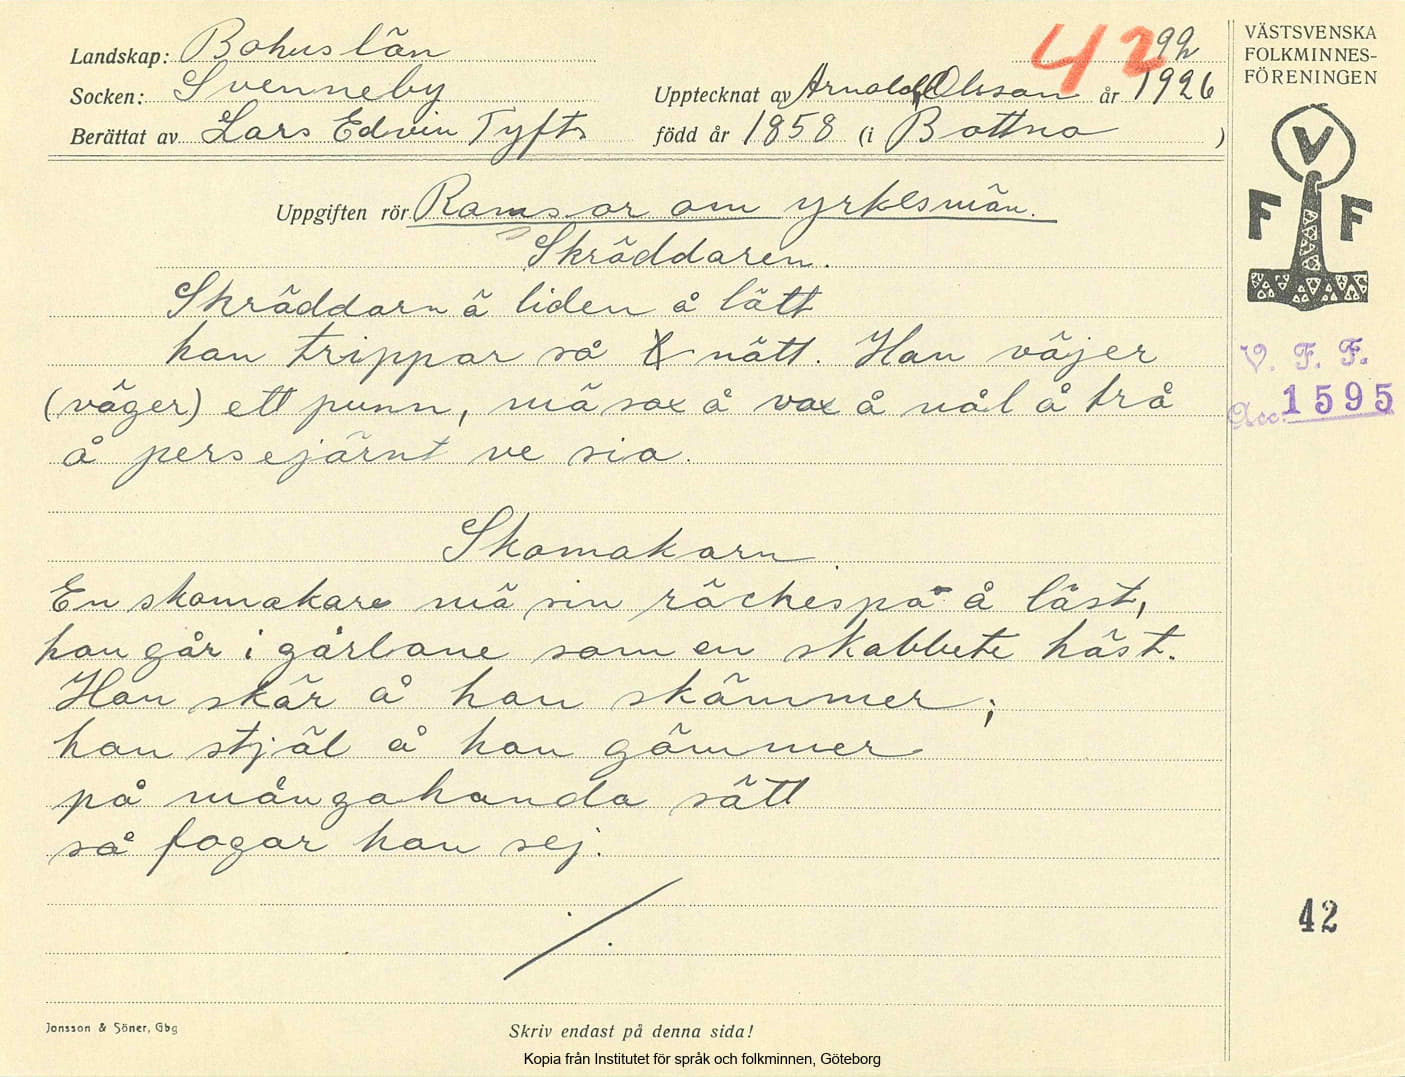 Landskap: Bohuslän
42 92
Socken: Svenneby Upptecknat av Arnold Olsson år 1926
Berättat av Lars Edvin Tyft född år 1858 (i Bottna )
VÄSTSVENSKA
FOLKMINNES-
FÖRENINGEN
V
F F
Uppgiften rör Ramsor om yrkesmän.
Skräddaren.
Skräddarn ä liden å lätt
han trippar så nätt. Han väjer
(väger) ett punn, mä sax å vax å nål å trå
å persejärnt ve sia.
V. F. F.
Acc. 1595
Skomakarn
En skomakare mä sin räckespa å läst,
han går i gårbane som en skabbete häst.
Han skär å han skämmer;
han stjäl å han gömmer
på mångahanda sätt
så fogar han sej.
42
Jonsson & Söner, Gbg
Skriv endast på denna sida!
Kopia från Institutet för språk och folkminnen, Göteborg